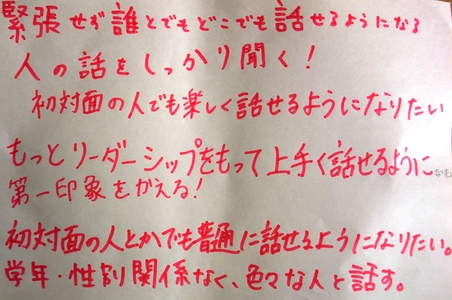 緊張せず誰とでもどこでも話せるようになる
人の話をしっかり聞く!
初対面の人でも楽しく話せるようになりたい
もっとリーダーシップをもって上手く話せるように
第一印象をかえる!
初対面の人とかでも普通に話せるようになりたい。
学年・性別関係なく、色々な人と話す。